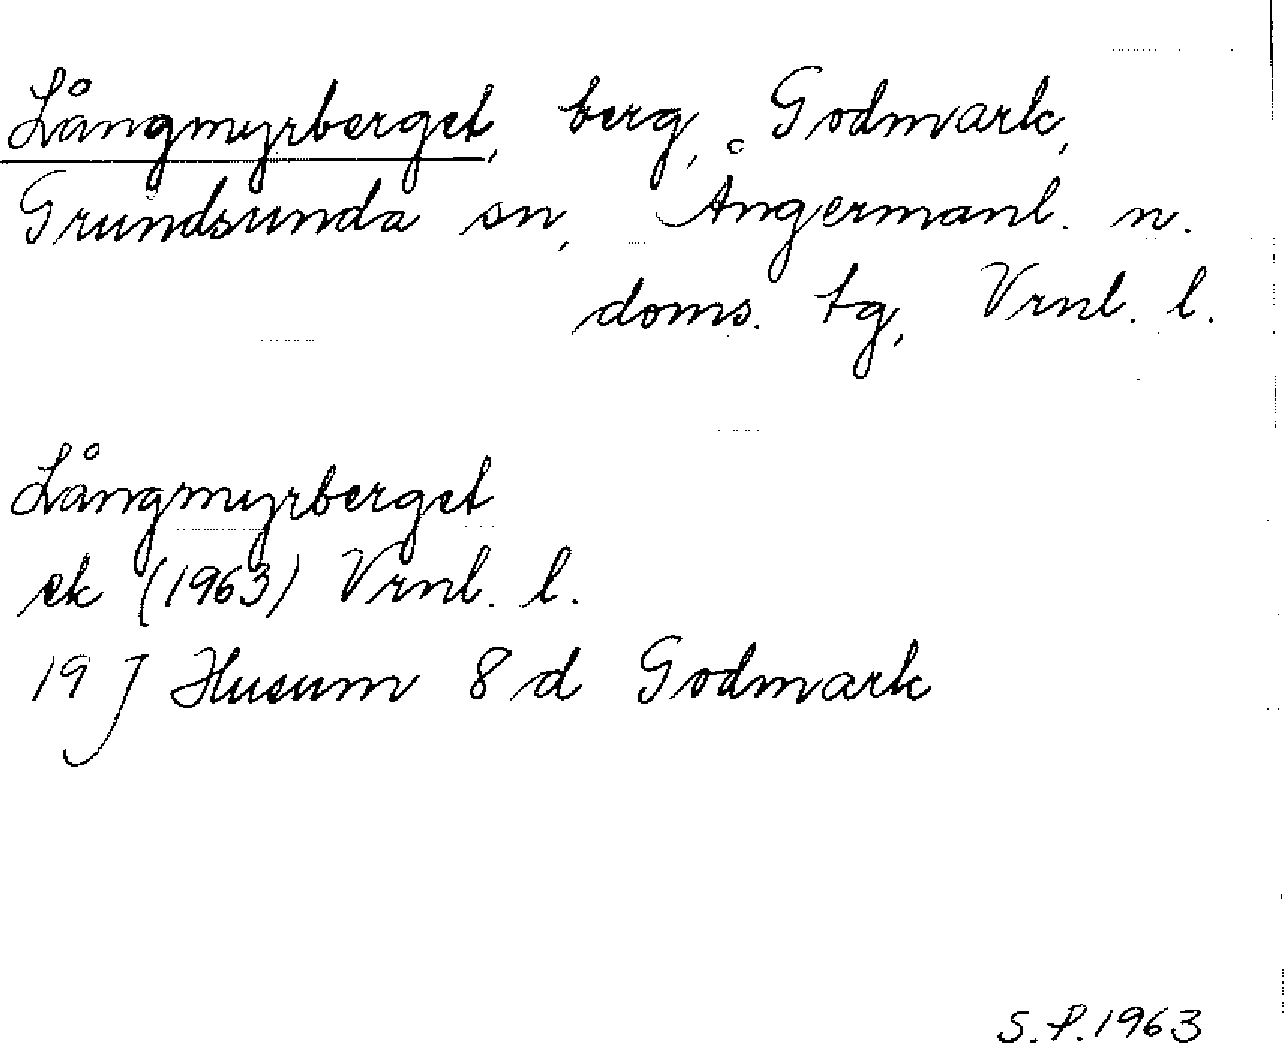 Långmyrberget, berg, Godmark,
Grundsunda sn, Ångermanl. n.
doms. tg, Vrnl. l.
Långmyrberget
ek (1963) Vrnl. l.
19 J Husum 8 d Godmark
S.P. 1963